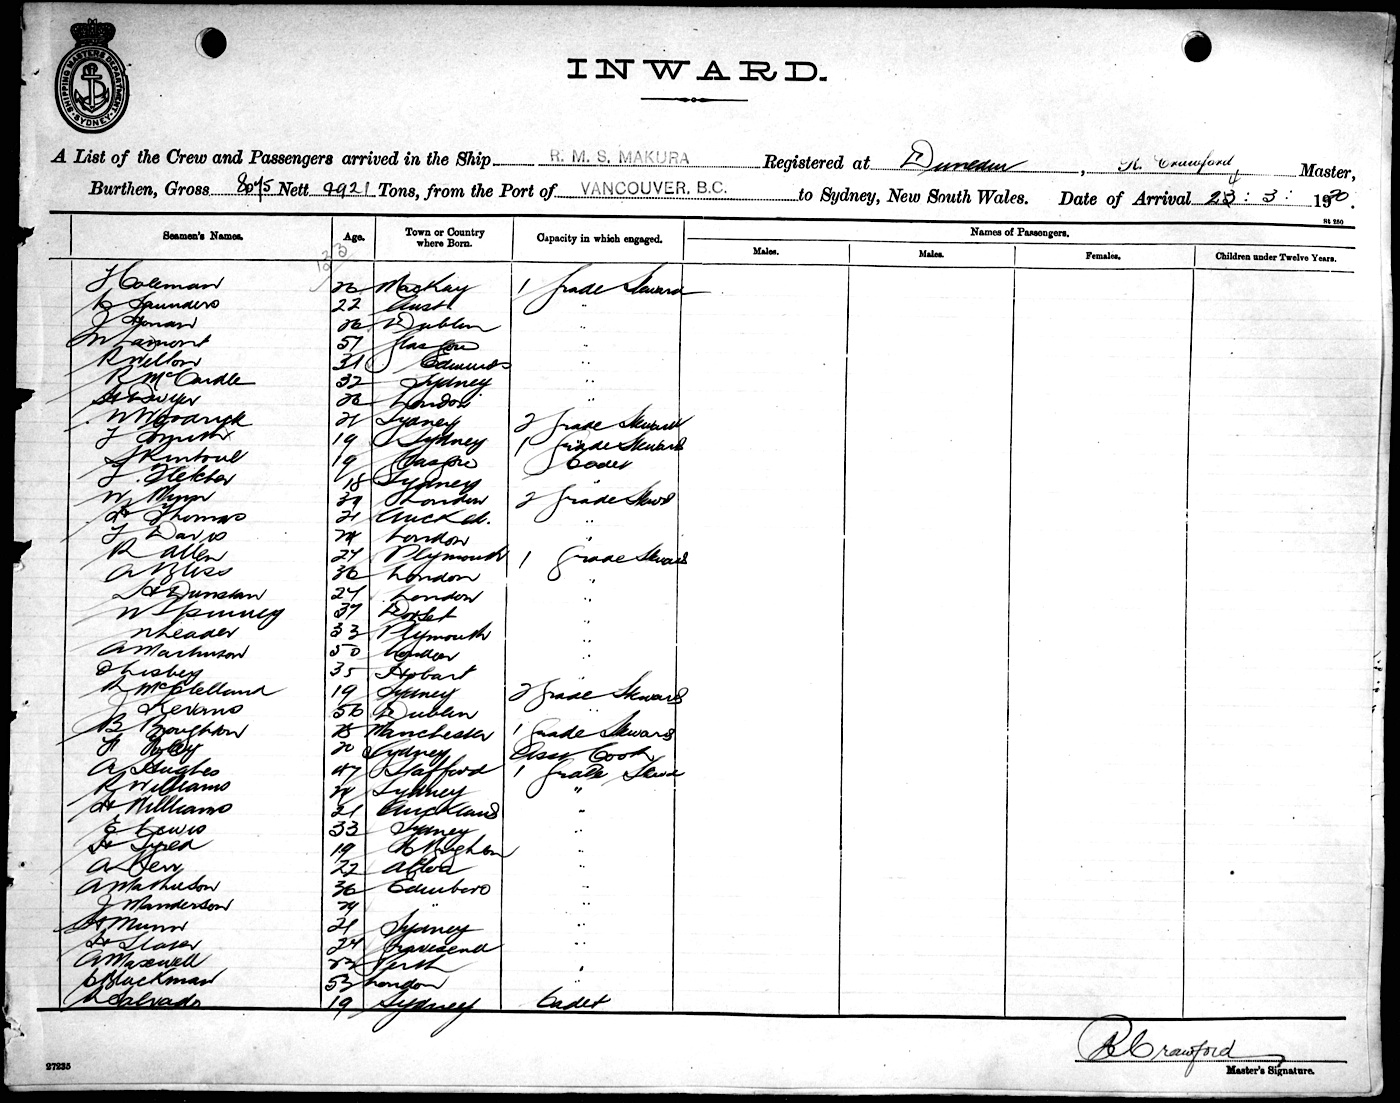 SHIPPING MASTERS DEPARTMENT SYDNEY
INWARD.
A List of the Crew and Passengers arrived in the Ship R. M. S. MAKURA Registered at Dunedin, R. Crawford Master,
Burthen, Gross 8075 Nett 4921 Tons, from the Port of VANCOUVER, B.C. to Sydney, New South Wales. Date of Arrival 23 : 3 : 1920.
St 250
Seamen's Names. Age. Town or Country where Born. Capacity in which engaged. Names of Passengers.
Males. Males. Females. Children under Twelve Years.
J Coleman 26 Mackay 1 grade Steward
Saunders 22 Aust "
26 Dublin "
Lamont 51 Glasgow "
R Mellon 31 Edinburgh "
R McCardle 32 Sydney "
H Dwyer 26 London "
21 Sydney 2 grade Steward
19 Sydney 1 grade Steward
Rintoul 19 Glasgow Cadet
J Fletcher 18 Sydney "
W Mynn 39 London 2 grade Stewd
H Thomas 21 Auckld. "
J Davis 24 London "
R Allen 27 Plymouth 1 grade Steward
A Bliss 36 London "
H Dunstan 27 London "
W Spinney 37 Dorset "
Leader 33 Plymouth "
A Mathieson 50 London "
Lisbey 35 Hobart "
R McClelland 19 Sydney 2 grade Steward
J Kevans 56 Dublin "
B Boughton Manchester 1 grade Steward
20 Sydney Asst Cook
A Hughes 47 Stafford 1 grade Stewd
R Williams 24 Sydney "
H Williams 21 Auckland "
E Lewis 33 Sydney "
H 19 "
A Kerr 22 Alloa "
A Mathieson 36 Edinboro "
J Manderson 24 " "
H Munn 21 Sydney "
H Slater 27 Gravesend "
A Maxwell 23 Perth "
C Blackman 53 London "
Salvado 19 Sydney Cadet
R Crawford
Master's Signature.
27235